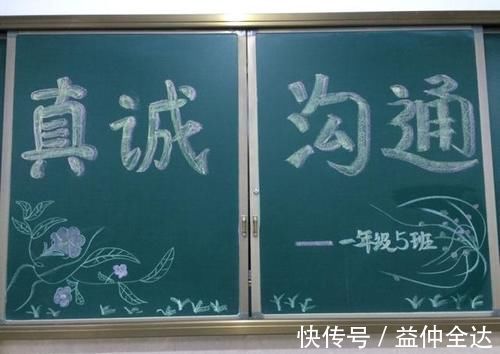 真诚沟通
——一年级5班
快传号 / 益仲全达